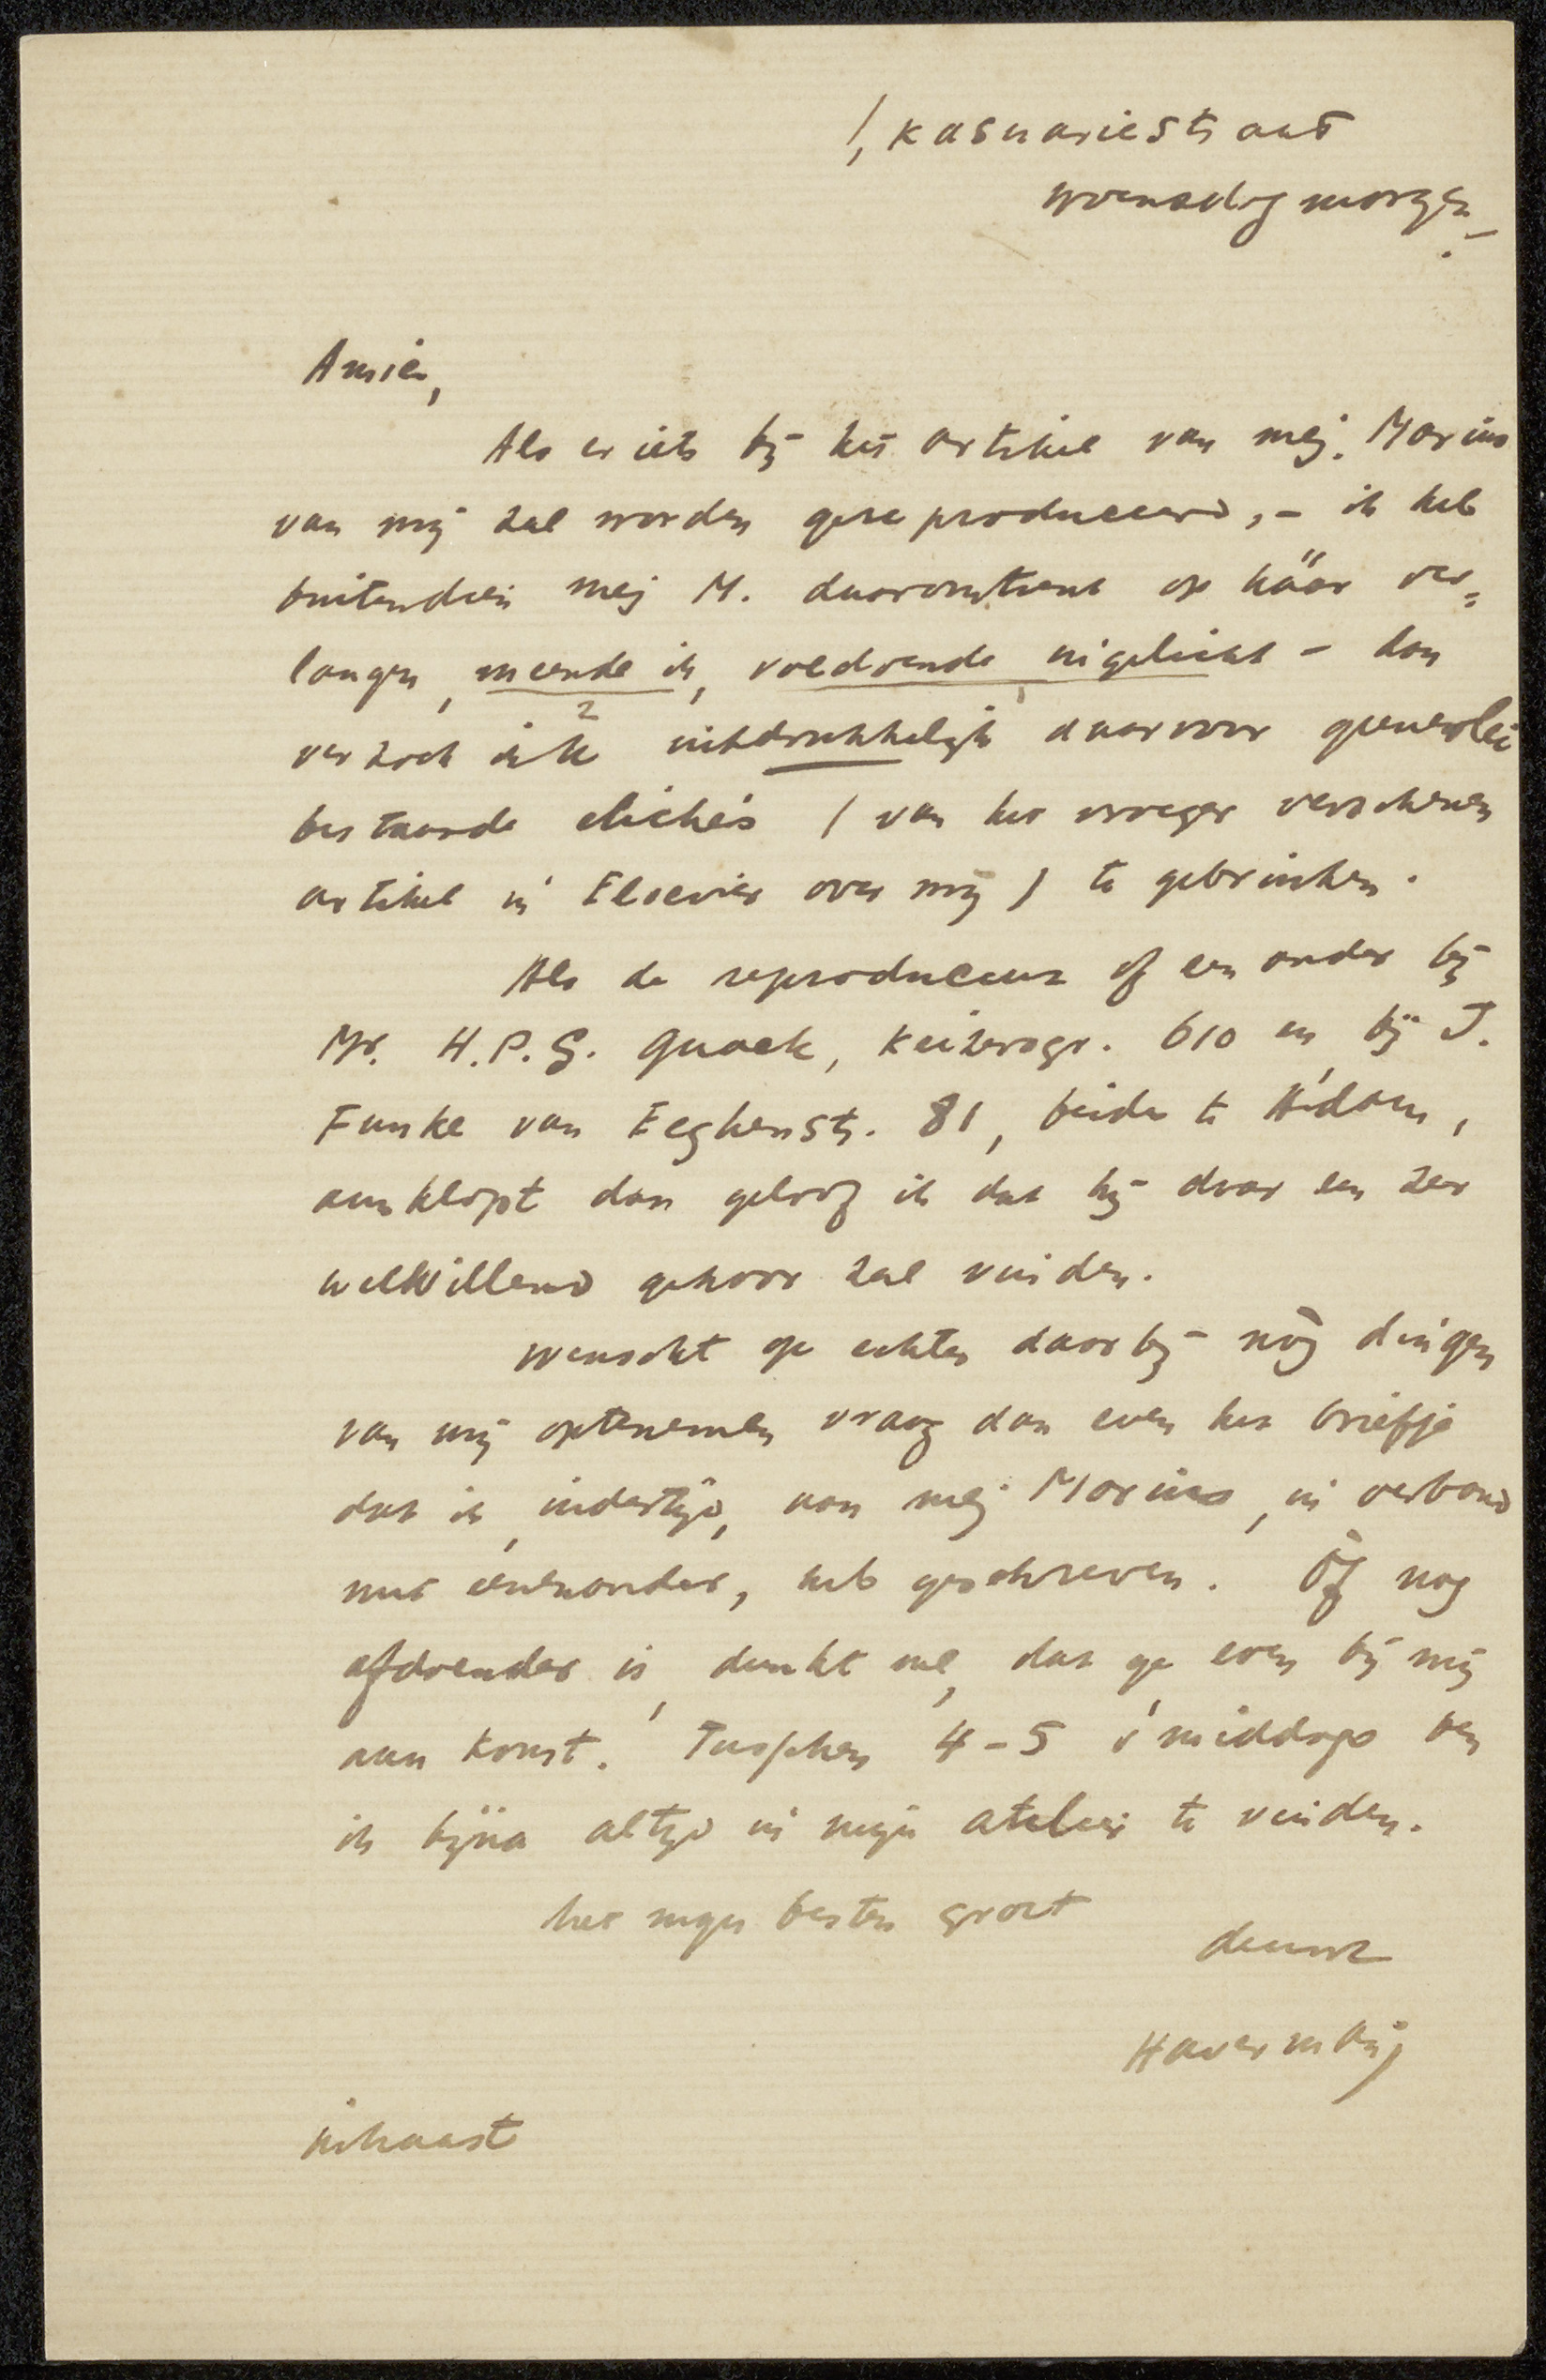 1, Kasuariestraat
woensdagmorgen.–
Amice,
Als er iets bij het artikel van mej. Marius
van mij zal worden gereproduceerd, – ik heb
buitendien mej M. daaromtrent op háár ver=
langen, meende ik, voldoende ingelicht – dan
verzoek ik U uitdrukkelijk daarvoor geenerlei
bestaande cliché's (van het vroeger verschenen
artikel in Elsevier over mij) te gebruiken.
Als de reproduceur of een ander bij
Mr. H.P.G. Quack, Keizersgr. 610 en bij J.
Funke van Eeghenstr. 81, beide te A'dam,
aanklopt dan geloof ik dat hij daar een zeer
welwillend gehoor zal vinden.
Wenscht ge echter daarbij nòg dingen
van mij optenemen vraag dan even het briefje
dat ik, indertijd, aan mej Marius, in verband
met een en ander, heb geschreven. Òf nog
afdoender is, dunkt me, dat ge even bij mij
aan komt. Tusschen 4–5 's middags ben
ik bijna altijd in mijn atelier te vinden.
het mijn besten groet
Haverman
inhaast